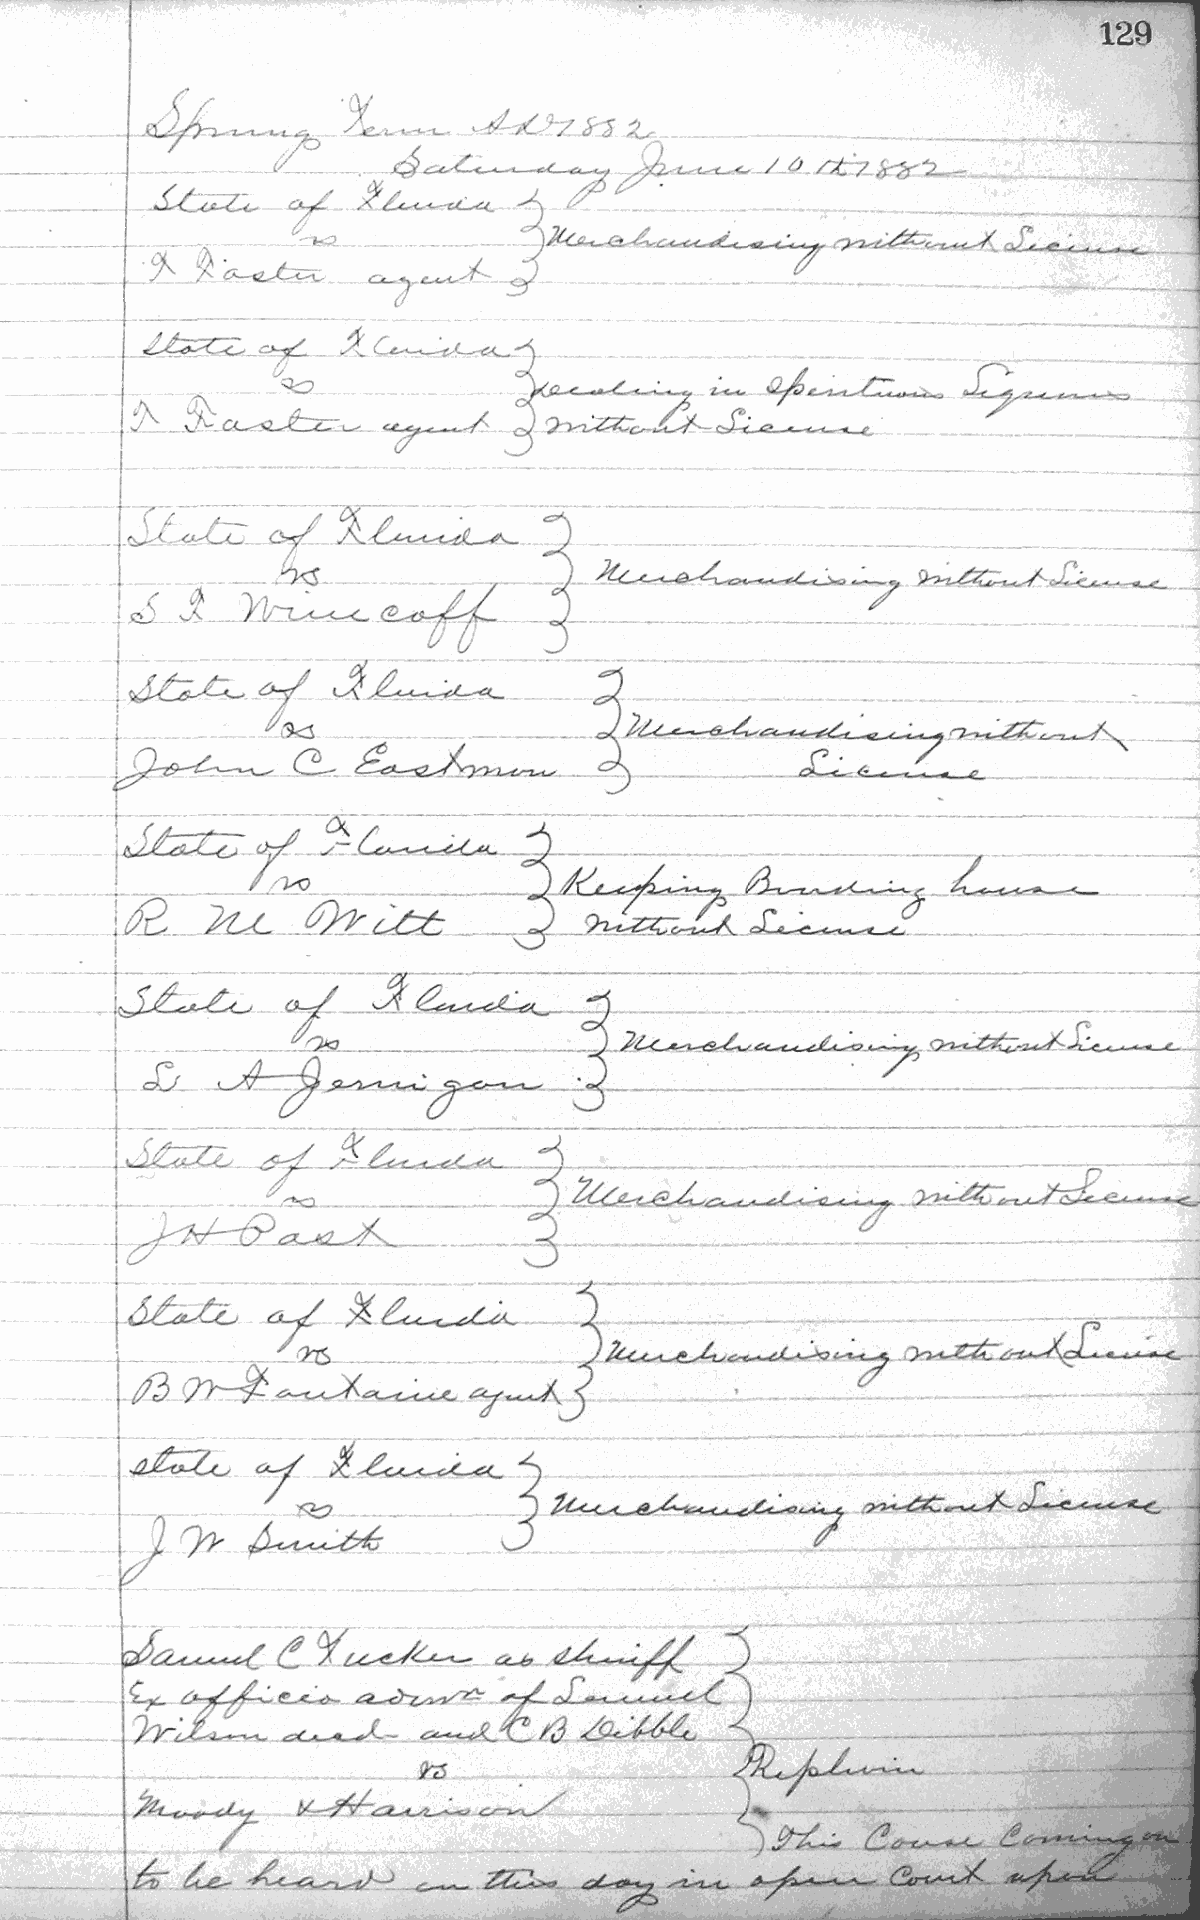 129
Spring Term AD 1882
Saturday June 10th 1882
State of Florida
vs
Merchandising without License
T Foster agent
State of Florida
vs
dealing in Spirituous Liquors
T Foster agent
without License
State of Florida
vs
Merchandising without License
S F Winecoff
State of Florida
vs
Merchandising without
John C Eastmon
License
State of Florida
vs
Keeping Bording house
R M Witt
without License
State of Florida
vs
Merchandising without License
L A Jernigan
State of Florida
vs
Merchandising without License
J H Post
State of Florida
vs
Merchandising without License
B W Fontaine agent
State of Florida
vs
Merchandising without License
J W Smith
Samuel C Tucker as Sheriff
Ex officio admr of Lemuel
Wilson decd and C B Dibble
vs
Replevin
Moody & Harrison
This Cause Coming on
to be heard on this day in open Court upon